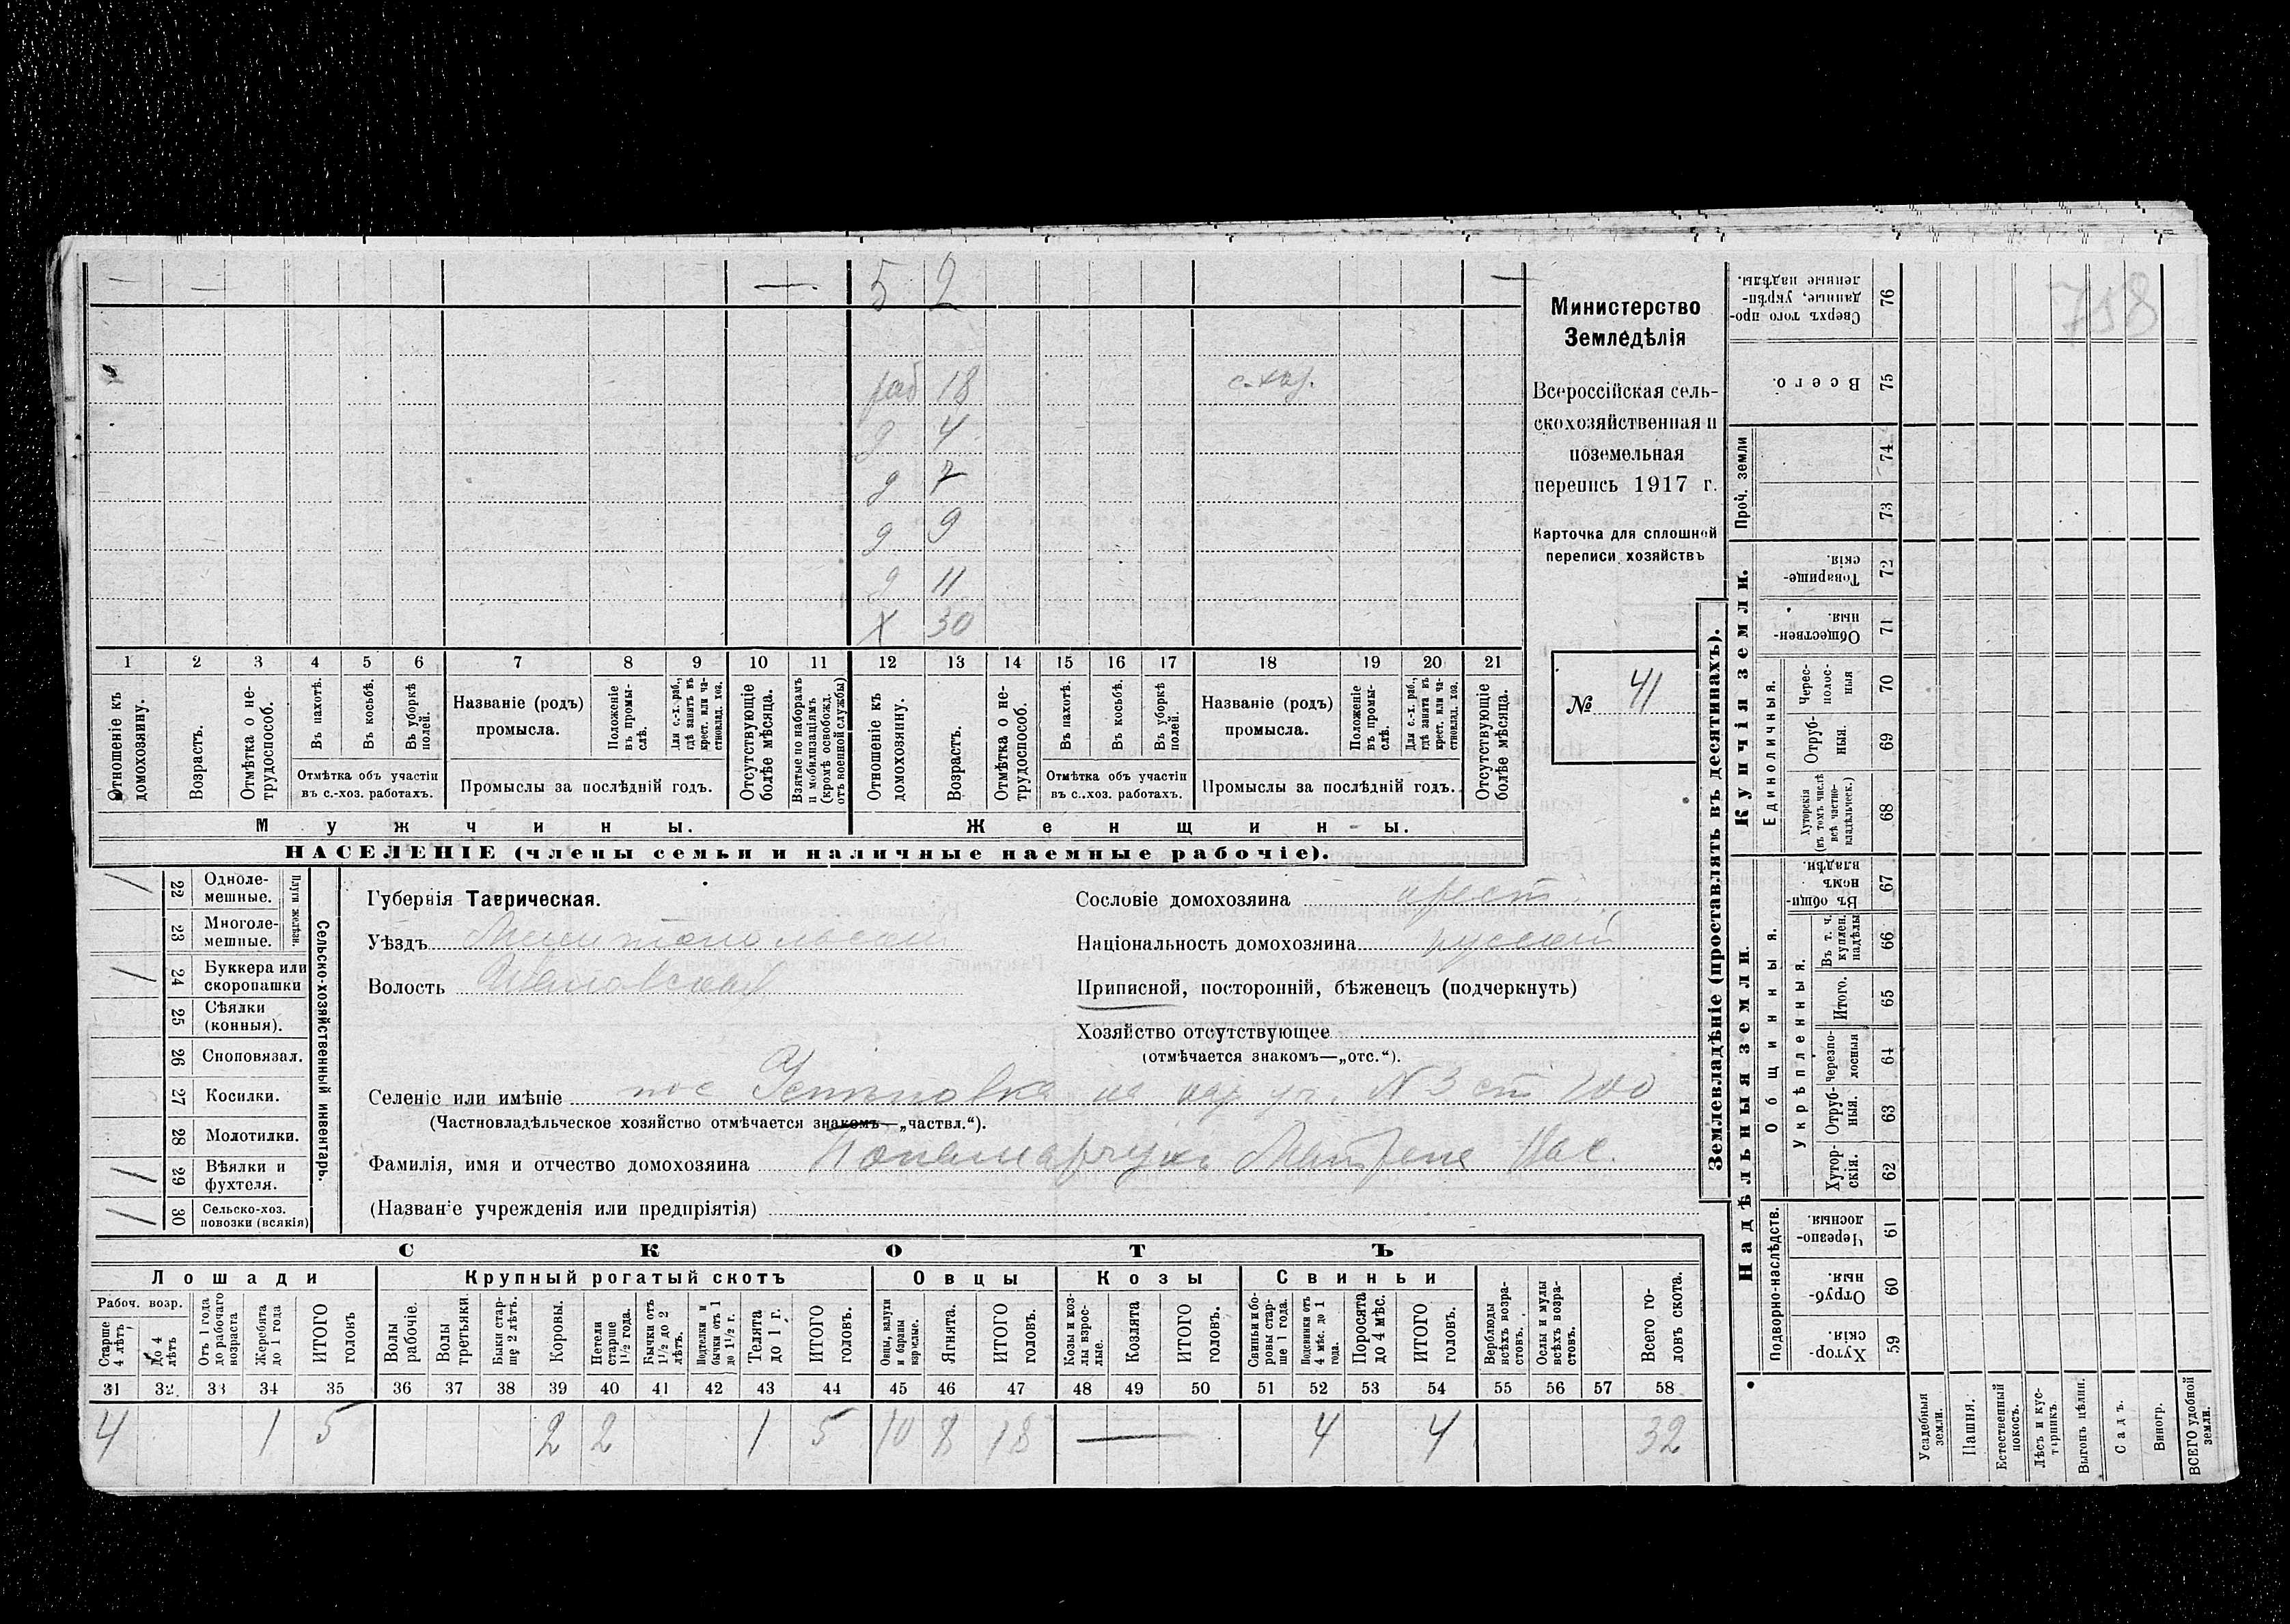 — — — 5 2 —
раб 18 с.хоз.
д 4
д 7
д 9
д 11
Х 30
1 2 3 4 5 6 7 8 9 10 11 12 13 14 15 16 17 18 19 20 21
Отношеніе къ домохозяину.
Возрастъ.
Отмѣтка о не-трудоспособ.
Въ пахотѣ.
Въ косьбѣ.
Въ уборкѣ полей.
Отмѣтка объ участіи въ с.-хоз. работахъ.
Названіе (родъ) промысла.
Положеніе въ промы-слѣ.
Для с.-х. раб., гдѣ занятъ въ крест. или ча-стновлад. хоз.
Промыслы за послѣдній годъ.
Отсутствующіе болѣе мѣсяца.
Взятые по наборамъ и мобилизаціямъ (кромѣ освобожд. отъ военной службы)
Отношеніе къ домохозяину.
Возрастъ.
Отмѣтка о не-трудоспособ.
Въ пахотѣ.
Въ косьбѣ.
Въ уборкѣ полей.
Отмѣтка объ участіи въ с..хоз. работахъ.
Названіе (родъ) промысла.
Положеніе въ промы-слѣ.
Для с.-х. раб., гдѣ занята въ крест. или ча-стновлад. хоз.
Промыслы за послѣдній годъ.
Отсутствующіе болѣе мѣсяца.
Мужчины. Женщины.
НАСЕЛЕНІЕ (члены семьи и наличные наемные рабочіе).
Министерство
Земледѣлія
Всероссійская сель-
скохозяйственная и
поземельная
перепись 1917 г.
Карточка для сплошной
переписи хозяйствъ
№ 41
/ 22 Одноле-мешные.
23 Многоле-мешные.
Плуги желѣзн.
/ 24 Буккера или скоропашки
25 Сѣялки (конныя).
26 Сноповязал.
27 Косилки.
28 Молотилки.
/ 29 Вѣялки и фухтеля.
/ 30 Сельско-хоз. повозки (всякія)
Сельско-хозяйственный инвентарь.
Губернія Таврическая.
Уѣздъ Мелитопольскій
Волость Ивановская
Сословіе домохозяина крест.
Національность домохозяина русскій
Приписной, посторонній, бѣженецъ (подчеркнуть)
Хозяйство отсутствующее
(отмѣчается знакомъ—„отс.“).
Селеніе или имѣніе пос на уч. N 3 ст 100
(Частновладѣльческое хозяйство отмѣчается знакомъ—„частвл.“).
Фамилія, имя и отчество домохозяина Понамарчукъ
(Названіе учрежденія или предпріятія)
СКОТЪ
Лошади Крупный рогатый скотъ Овцы Козы Свиньи
Рабоч. возр.
Старше 4 лѣтъ
До 4 лѣтъ
Отъ 1 года до рабочаго возраста
Жеребята до 1 года
ИТОГО головъ
Волы рабочіе.
Волы третьяки.
Быки стар-ще 2 лѣтъ.
Коровы.
Нетели старше 1½ года.
Бычки отъ 1½ до 2 лѣтъ.
Подтелки и бычки отъ 1 до 1½ г.
Телята до 1 г.
ИТОГО головъ.
Овцы, валухи и бараны взрослые.
Ягнята.
ИТОГО головъ.
Козы и коз-лы взрос-лые.
Козлята
ИТОГО головъ.
Свиньи и бо-ровы стар-ше 1 года.
Подсвинки отъ 4 мѣс. до 1 года.
Поросята до 4 мѣс.
ИТОГО головъ.
Верблюды всѣхъ возра-стовъ.
Ослы и мулы всѣхъ возра-стовъ.
Всего го-ловъ скота.
31 32 33 34 35 36 37 38 39 40 41 42 43 44 45 46 47 48 49 50 51 52 53 54 55 56 57 58
4 1 5 2 2 1 5 10 8 18 — 4 4 32
Землевладѣніе (проставлять въ десятинахъ).
758
Сверхъ того про-данные, укрѣп-ленные надѣлы. 76
Всего. 75
Проч. земли
74
73
Купчія земли.
Товарище-скія. 72
Обществен-ныя. 71
Единоличныя.
Черес-полос-ныя 70
Отруб-ныя. 69
Хуторскія (въ томъ числѣ всѣ частно-владѣльческ.) 68
Надѣльныя земли.
Общинныя.
Въ общи-номъ владѣн. 67
Укрѣпленныя.
Въ т. ч. куплен. надѣлы 66
Итого. 65
Черезпо-лосныя 64
Отруб-ныя. 63
Хутор-скія. 62
Подворно-наслѣдств.
Черезпо-лосныя 61
Отруб-ныя. 60
Хутор-скія. 59
Усадебныя земли.
Пашня.
Естественный покосъ.
Лѣсъ и кус-тарникъ.
Выгонъ цѣлин.
Садъ.
Виногр.
ВСЕГО удобной земли.